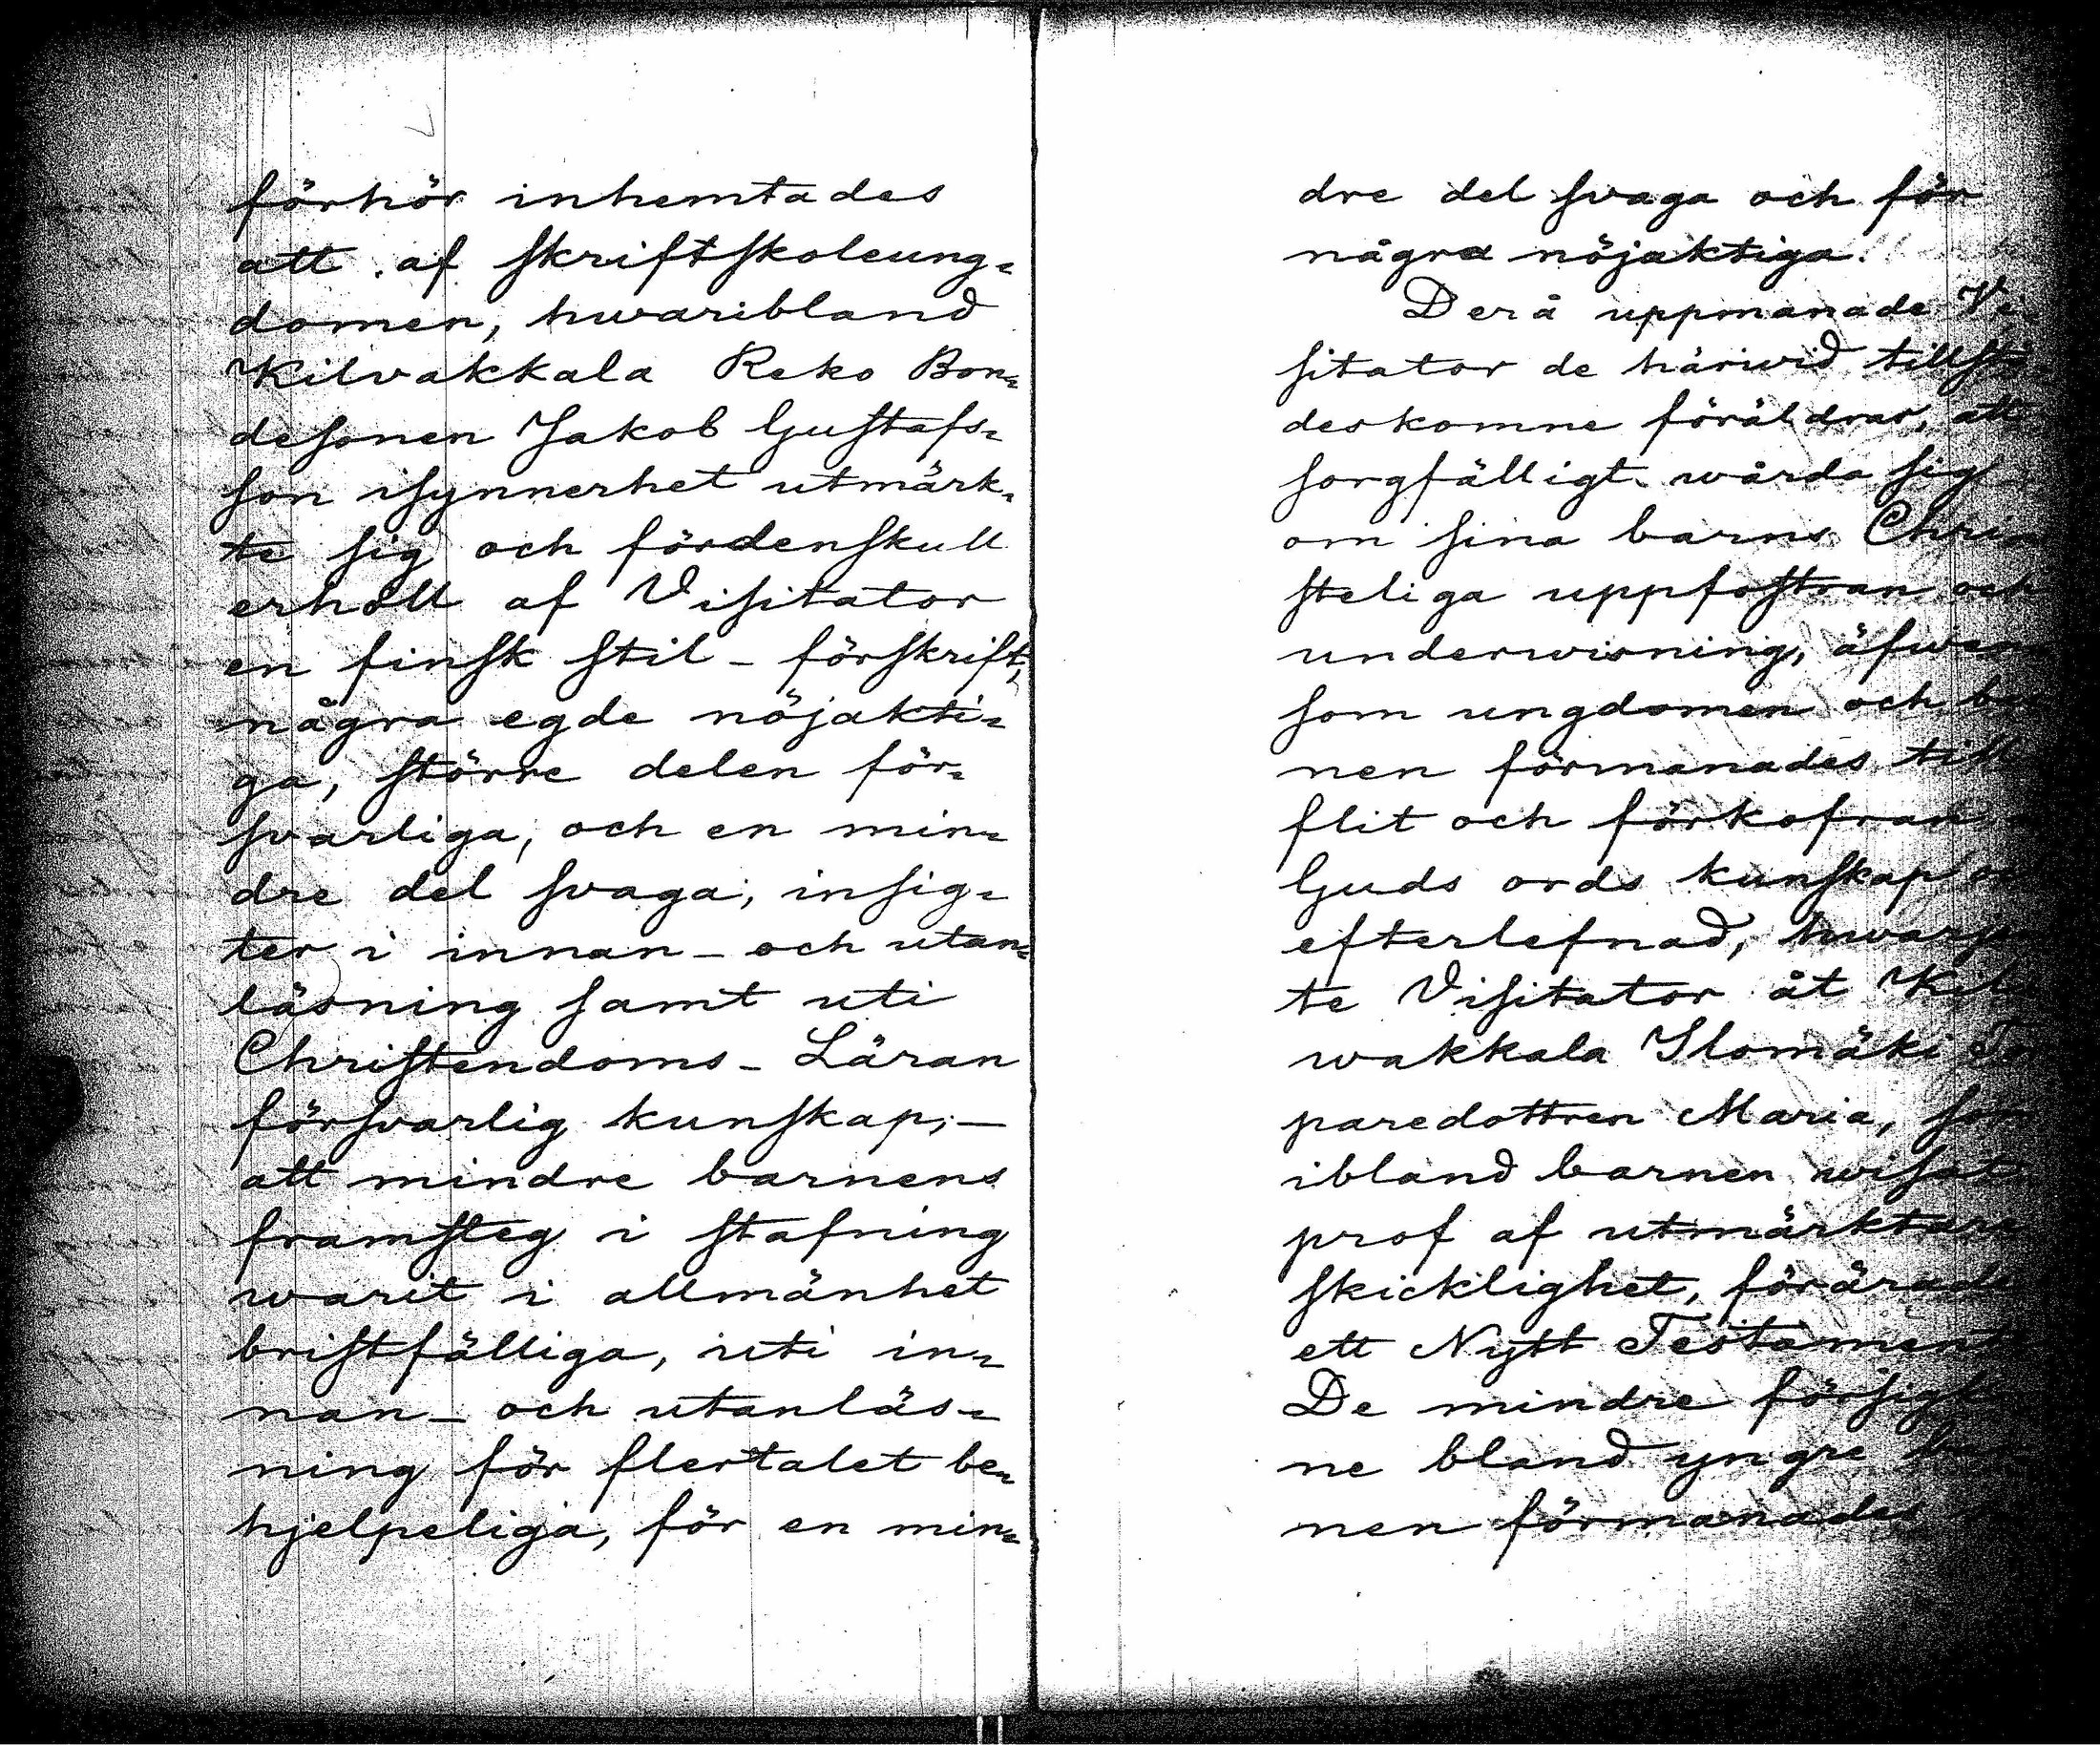 förhör inhemtades
att af skriftskoleung=
domen, hwaribland
Kilvakkala Reko Bon=
desonen Jakob Gustafs=
son isynnerhet utmärk=
te sig och fördenskull
erhöll af Visitator
en finsk stil - förskrift,
några egde nöjakti=
ga, större delen för=
svarliga, och en min=
dre del svaga, insig=
ter i innan - och utan=
läsning samt uti
Christendoms - Läran
försvarlig kunskap; —
att mindre barnens
framsteg i stafning
warit i allmänhet
bristfälliga, uti in=
nan - och utanläs=
ning för flertalet be=
hjelpeliga, för en min=
dre del svaga och för
några nöjaktiga.
Derå uppmanade Vi
sitator de härwid tillsti
deskomne föräldrar, att
sorgfälligt wårda sig
om sina barns Chri
steliga uppfostran och
underwisning, äfwen
som ungdomen och ba
nen förmanades till
flit och förkofran
Guds ords kunskap oc
efterlefnad, hwarje
te Visitator åt Kil
wakkala Ylomäki To
paredottren Maria, som
ibland barnen wisat
prof af utmärktare
skicklighet, förärade
ett Nytt Testament
De mindre försigk
ne bland yngre ba
nen förmanades